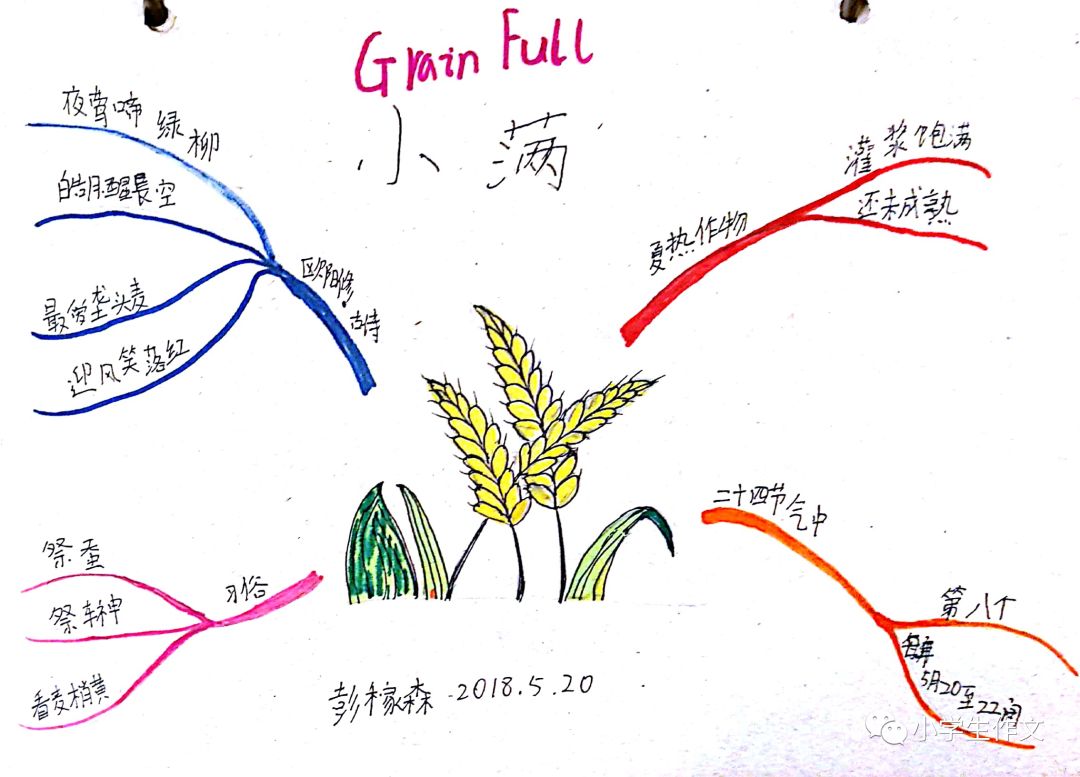 Grain Full
小满
夜莺啼绿柳
皓月醒長空
最爱垄头麦
迎风笑落红
欧阳修·古诗
夏热作物
灌浆饱满
还未成熟
二十四节气中
第八个
每年
5月20至22间
习俗
祭蚕
祭车神
看麦梢黄
彭稼森 2018.5.20
小学生作文